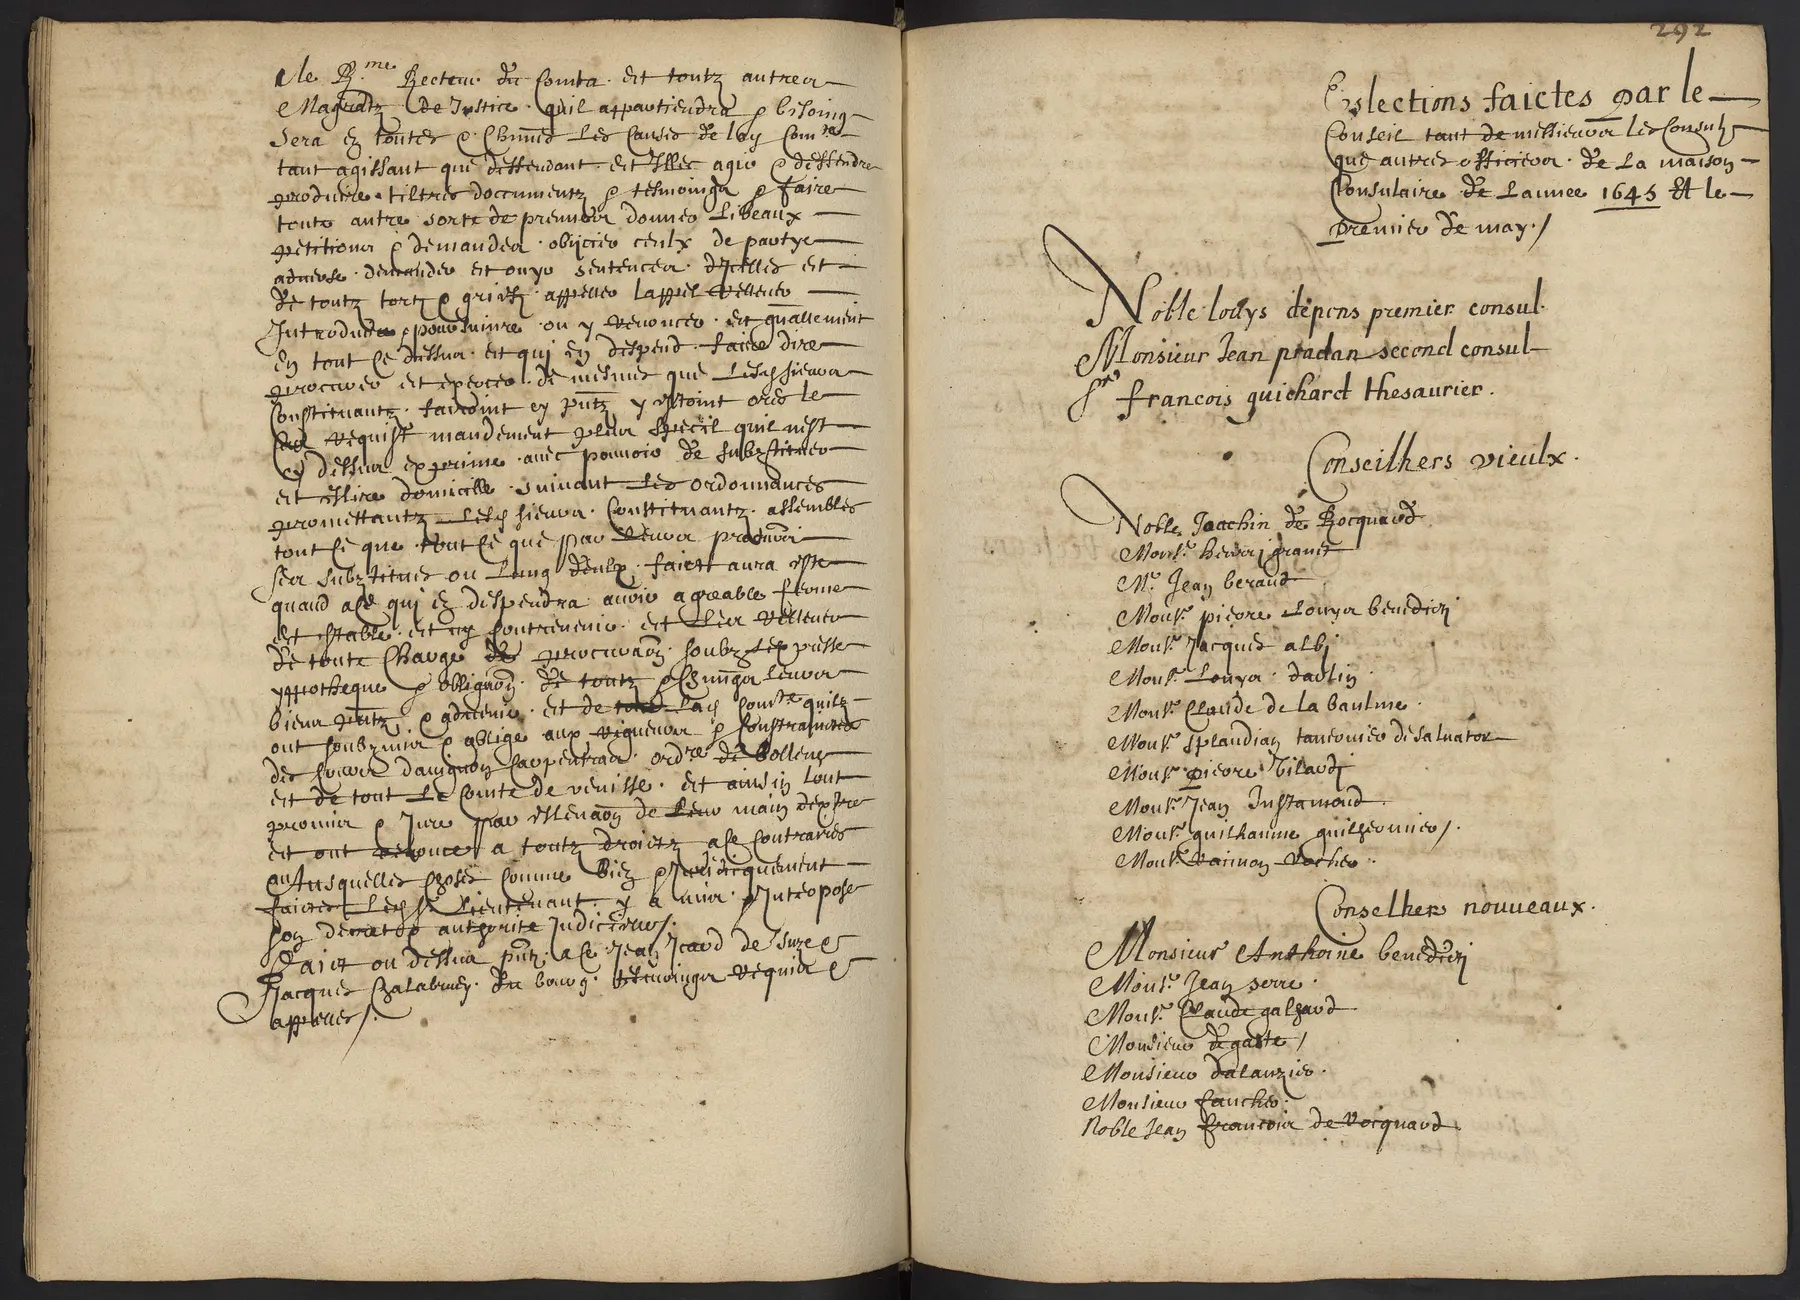 le R.me Recteur du Comta et toutz autres
Magratz de Justice quil appartiendra & besoing
sera en toutes & Chunes les causes de lad Com.te
tant agissant que deffendant et Illec agir & deffendre
produire tiltres documentz & tesmoings & faire
toute autre sorte de preuves donner Libeaux
petitions & demandes obijcier ceulx de partye
adverse demander et ouyr sentences dicelles et
de toutz tortz & griefz appeller lappel rellever
Introduire & poursuivre ou y renoncer et generallement
en tout ce dessus et qui en despend faire dire
procurer et exercer de mesmes que lesd sieurs
Constituantz fairoint
requist mandement plus speciil quil nest
cy dessus exprime avec pouvoir de substituer
et eslire domicille suivant les ordonnances
promettantz lesd sieurs Constituantz assembles
tout ce que tout ce que par leurs
ses substitues ou lung deulx faict aura este
quand a ce qui en despendra avoir agreable ferme
et stable et ny contrevenir et les rellever
de toute charge de procura(ti)on soubz lexpresse
yppotheque & obliga(ti)on de toutz & Chungs leurs
biens p(rese)ntz & advenir et de lad Com.te quilz
ont soubzmis & oblige aux rigueurs & Contrainctes
des Courtz davignon Carpentras ord.re de Bollene
et de tout le Comte de venisse et ainsin lont
promis & Jure par ellevation de leur main dextre
et ont renonce a toutz droictz a ce contraires
ausquelles choses comme bien & Juridicquement
faictes led s.r Lieutenant y a mis & Interpose
son decret & authorite Judiciere/.
Faict ou dessus p(rese)ntz a ce Jean Icard de Suze &
Jacques Chalabrey du bourg tesmoings requis &
appelles/.
292
Eslections faictes par le
Conseil tant de messieurs les Consulz
que autres officiers de La maison
Consulaire de Lannee 1645 Et le
premier de may./
Noble louys depens premier consul
Monsieur Jean pradan second consul
S.r francois guichard thesaurier.
Conseilhers vieulx.
Noble Joachin de Rocquard
Mons.r henri granet
M.r Jean beraud
Mons.r pierre Louys benedicti
Mons.r Jacques albi
Mons.r Louys daulin
Mons.r Claude de la baulme.
Mons.r Splandian tavernier de salvator
Mons.r pierre bilardi
Mons.r Jean Justamond.
Mons.r guilhaume guilhermier/.
Mons.r raimon rocher.
Conselhers nouveaux.
Monsieur Anthoine benedicti
Mons.r Jean serre.
Mons.r Claude galhard
Monsieur degaste/
Monsieur dalauzier.
Monsieur faucher.
Noble Jean francois de rocquard